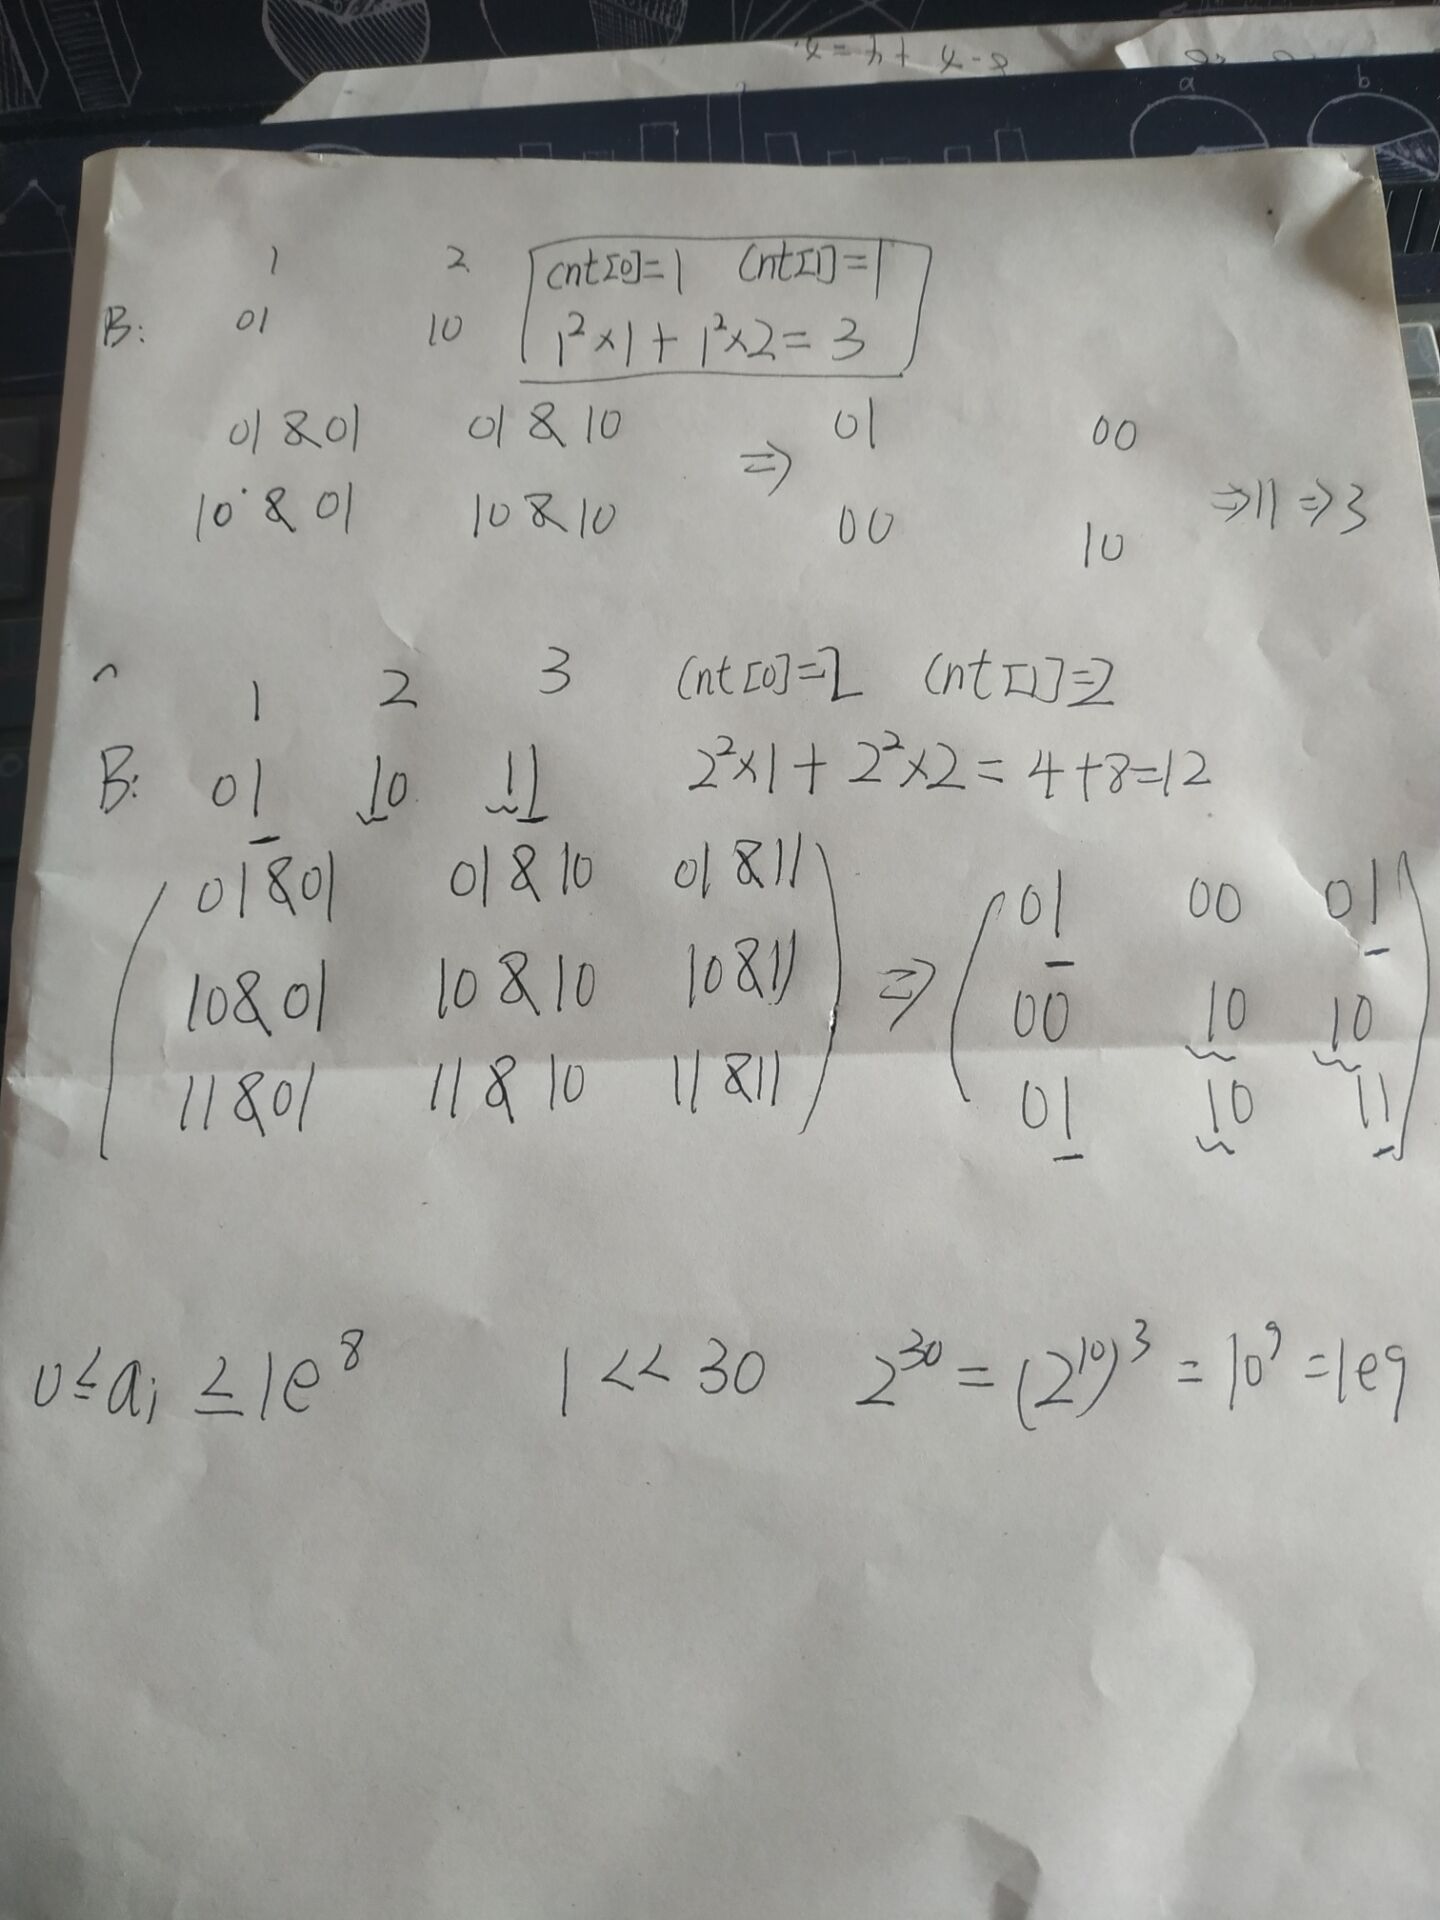 a b
1 2 cnt[0]=1 cnt[1]=1
B: 01 10 1²×1+1²×2=3
01&01 01&10 ⇒ 01 00
10&01 10&10 00 10 ⇒11⇒3
1 2 3 cnt[0]=2 cnt[1]=2
B: 01 10 11 2²×1+2²×2=4+8=12
01&01 01&10 01&11 ⇒ 01 00 01
10&01 10&10 10&11 00 10 10
11&01 11&10 11&11 01 10 11
0≤ai≤1e⁸ 1<<30 2³⁰=(2¹⁰)³=10⁹=1e9